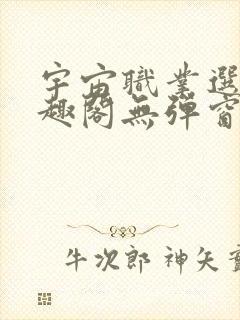 宇宙職業選
趣閣無彈窗
牛次郎 神矢